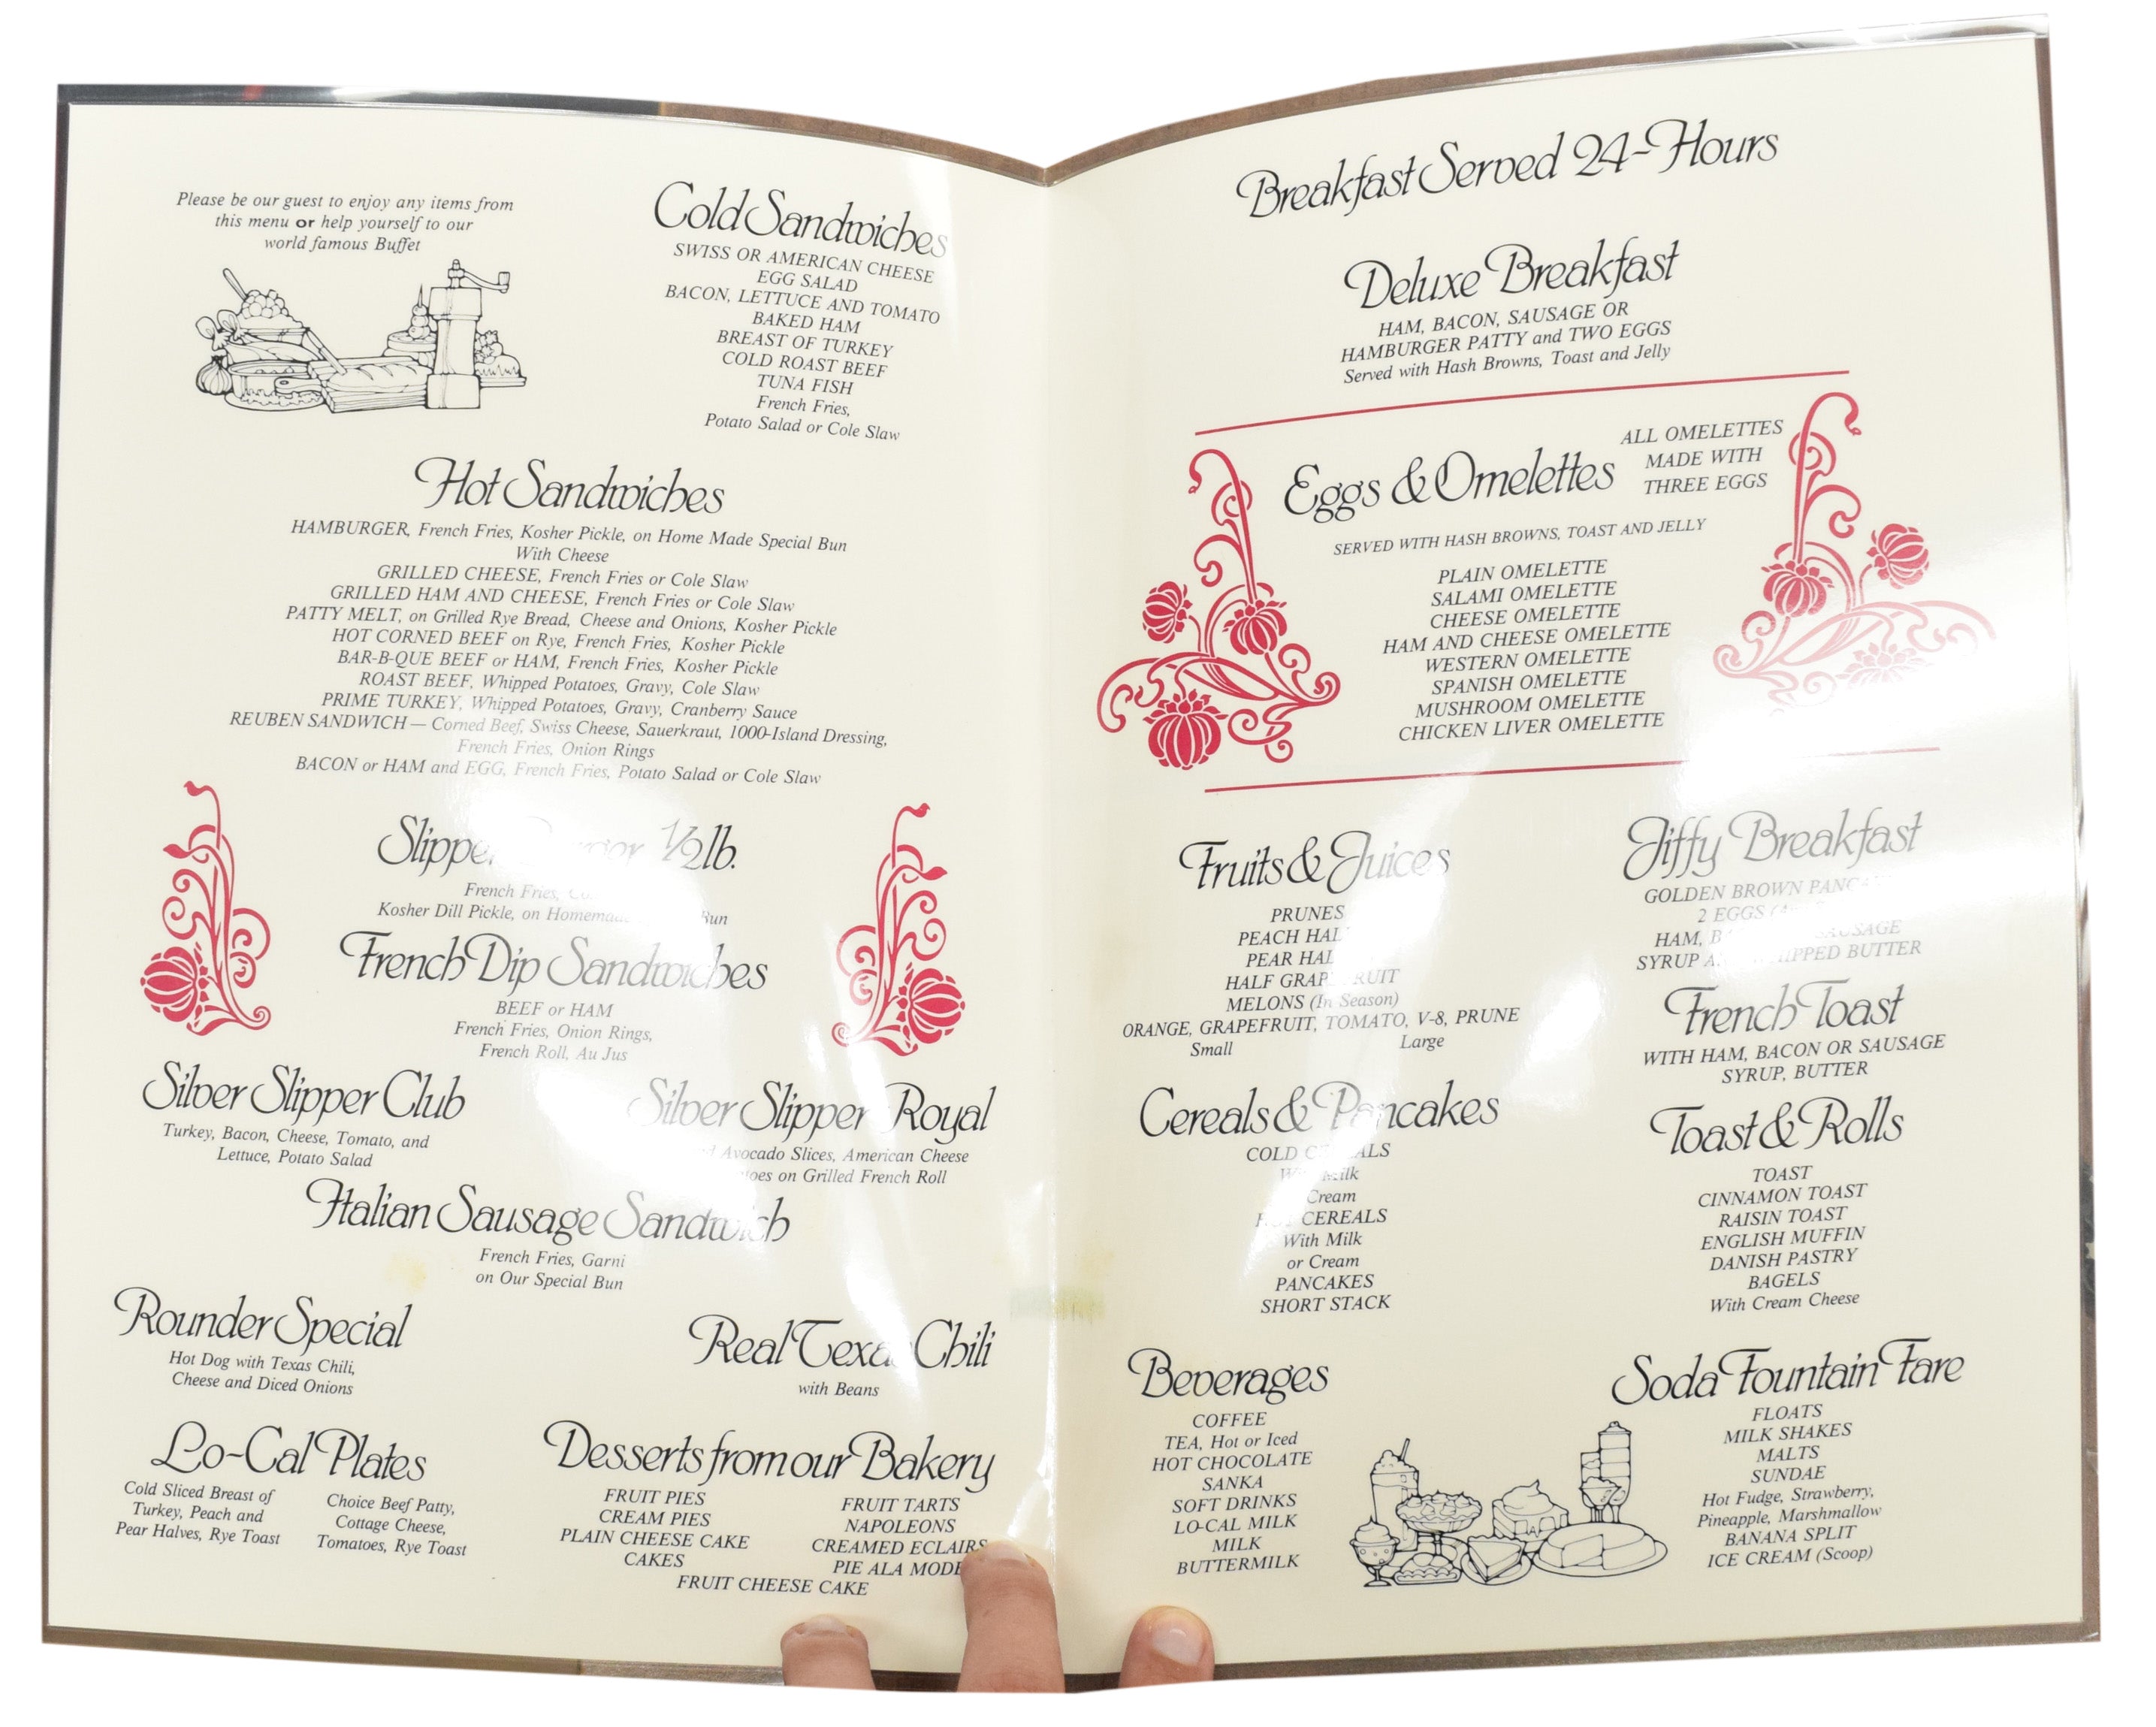 Please be our guest to enjoy any items from
this menu or help yourself to our
world famous Buffet
Cold Sandwiches
SWISS OR AMERICAN CHEESE
EGG SALAD
BACON, LETTUCE AND TOMATO
BAKED HAM
BREAST OF TURKEY
COLD ROAST BEEF
TUNA FISH
French Fries,
Potato Salad or Cole Slaw
Hot Sandwiches
HAMBURGER, French Fries, Kosher Pickle, on Home Made Special Bun
With Cheese
GRILLED CHEESE, French Fries or Cole Slaw
GRILLED HAM AND CHEESE, French Fries or Cole Slaw
PATTY MELT, on Grilled Rye Bread, Cheese and Onions, Kosher Pickle
HOT CORNED BEEF on Rye, French Fries, Kosher Pickle
BAR-B-QUE BEEF or HAM, French Fries, Kosher Pickle
ROAST BEEF, Whipped Potatoes, Gravy, Cole Slaw
PRIME TURKEY, Whipped Potatoes, Gravy, Cranberry Sauce
REUBEN SANDWICH — Corned Beef, Swiss Cheese, Sauerkraut, 1000-Island Dressing,
French Fries, Onion Rings
BACON or HAM and EGG, French Fries, Potato Salad or Cole Slaw
Slipper Burger 1/2 lb.
French Fries,
Kosher Dill Pickle, on Homemade Bun
French Dip Sandwiches
BEEF or HAM
French Fries, Onion Rings,
French Roll, Au Jus
Silver Slipper Club
Turkey, Bacon, Cheese, Tomato, and
Lettuce, Potato Salad
Silver Slipper Royal
Avocado Slices, American Cheese
on Grilled French Roll
Italian Sausage Sandwich
French Fries, Garni
on Our Special Bun
Rounder Special
Hot Dog with Texas Chili,
Cheese and Diced Onions
Real Texas Chili
with Beans
Lo-Cal Plates
Cold Sliced Breast of
Turkey, Peach and
Pear Halves, Rye Toast
Choice Beef Patty,
Cottage Cheese,
Tomatoes, Rye Toast
Desserts from our Bakery
FRUIT PIES
CREAM PIES
PLAIN CHEESE CAKE
CAKES
FRUIT TARTS
NAPOLEONS
CREAMED ECLAIRS
PIE ALA MODE
FRUIT CHEESE CAKE
Breakfast Served 24-Hours
Deluxe Breakfast
HAM, BACON, SAUSAGE OR
HAMBURGER PATTY and TWO EGGS
Served with Hash Browns, Toast and Jelly
Eggs & Omelettes
ALL OMELETTES
MADE WITH
THREE EGGS
SERVED WITH HASH BROWNS, TOAST AND JELLY
PLAIN OMELETTE
SALAMI OMELETTE
CHEESE OMELETTE
HAM AND CHEESE OMELETTE
WESTERN OMELETTE
SPANISH OMELETTE
MUSHROOM OMELETTE
CHICKEN LIVER OMELETTE
Fruits & Juices
PRUNES
PEACH
PEAR
HALF GRAPEFRUIT
MELONS (In Season)
ORANGE, GRAPEFRUIT, TOMATO, V-8, PRUNE
Small Large
Cereals & Pancakes
COLD CEREALS
With Milk
Cream
HOT CEREALS
With Milk
or Cream
PANCAKES
SHORT STACK
Beverages
COFFEE
TEA, Hot or Iced
HOT CHOCOLATE
SANKA
SOFT DRINKS
LO-CAL MILK
MILK
BUTTERMILK
Jiffy Breakfast
GOLDEN BROWN PANCAKES
2 EGGS
HAM, BACON SAUSAGE
SYRUP AND WHIPPED BUTTER
French Toast
WITH HAM, BACON OR SAUSAGE
SYRUP, BUTTER
Toast & Rolls
TOAST
CINNAMON TOAST
RAISIN TOAST
ENGLISH MUFFIN
DANISH PASTRY
BAGELS
With Cream Cheese
Soda Fountain Fare
FLOATS
MILK SHAKES
MALTS
SUNDAE
Hot Fudge, Strawberry,
Pineapple, Marshmallow
BANANA SPLIT
ICE CREAM (Scoop)